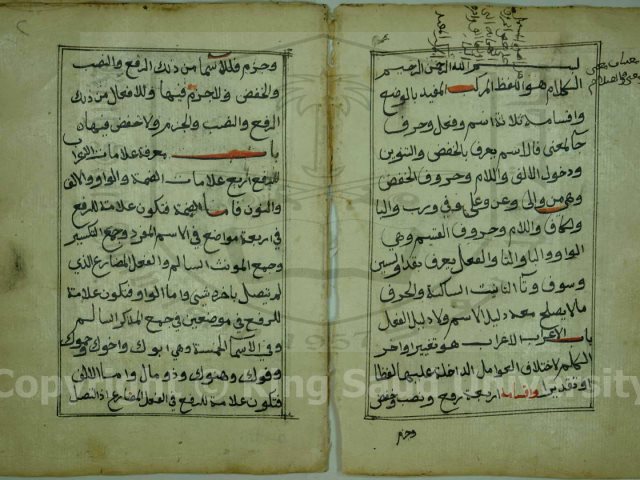 بسم الله الرحمن الرحيم
الكلام هو اللفظ المركب المفيد بالوضع
واقسامه ثلاثة اسم وفعل وحرف
جا لمعنى فالاسم يعرف بالخفض والتنوين
ودخول الالف واللام وحروف الخفض
وهي من والى وعن وعلى وفي ورب والبا
والكاف واللام وحروف القسم وهي
الواو والبا والتا والفعل يعرف بقد والسين
وسوف وتا التانيث الساكنة والحرف
ما لا يصلح معه دليل الاسم ولا دليل الفعل
باب الاعراب الاعراب هو تغيير اواخر
الكلم لاختلاف العوامل الداخلة عليها لفظا
او تقديرا واقسامه اربعة رفع ونصب وخفض
وجزم
وجزم فللاسما من ذلك الرفع والنصب
والخفض ولا جزم فيها وللافعال من ذلك
الرفع والنصب والجزم ولا خفض فيها
باب معرفة علامات الاعراب
للرفع اربع علامات الضمة والواو والالف
والنون فاما الضمة فتكون علامة للرفع
في اربعة مواضع في الاسم المفرد وجمع التكسير
وجمع المونث السالم والفعل المضارع الذي
لم يتصل باخره شي واما الواو فتكون علامة
للرفع في موضعين في جمع المذكر السالم
وفي الاسما الخمسة وهي ابوك واخوك وحموك
وفوك وهنوك وذو مال واما الالف
فتكون علامة للرفع في الفعل المضارع اذا اتصل
Copyright © King Saud University
1957